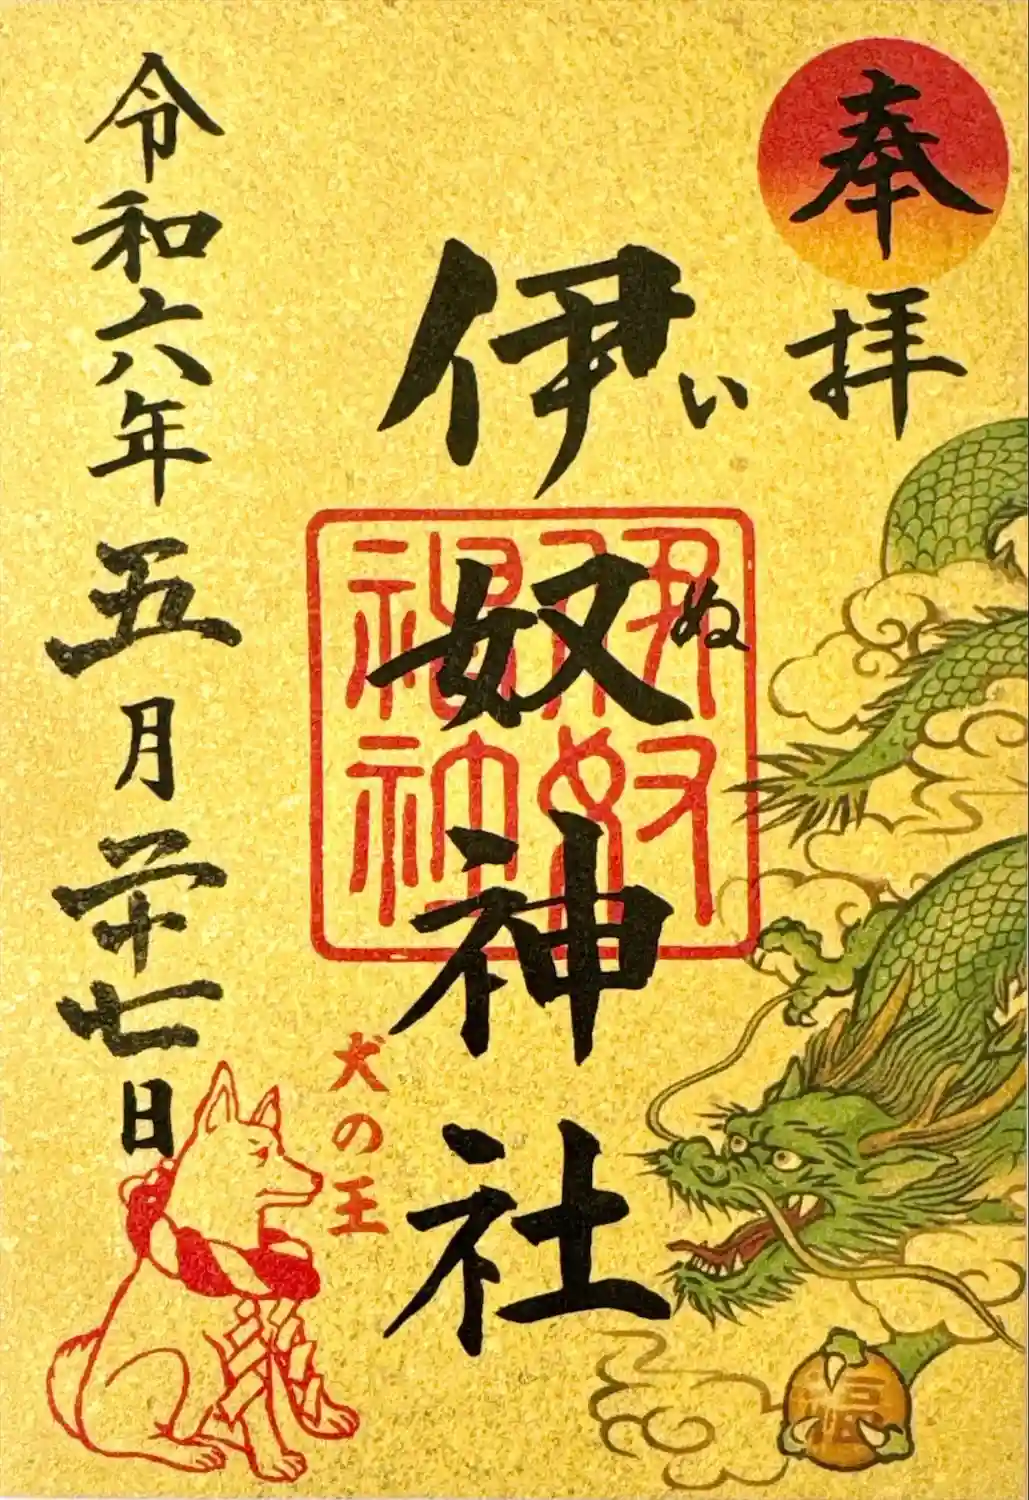 奉拝
伊奴神社
いぬ
伊奴
神社
犬の王
令和六年五月二十七日
福